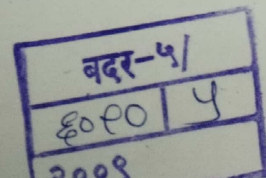 बदर-५/
६०९० ५
२००९